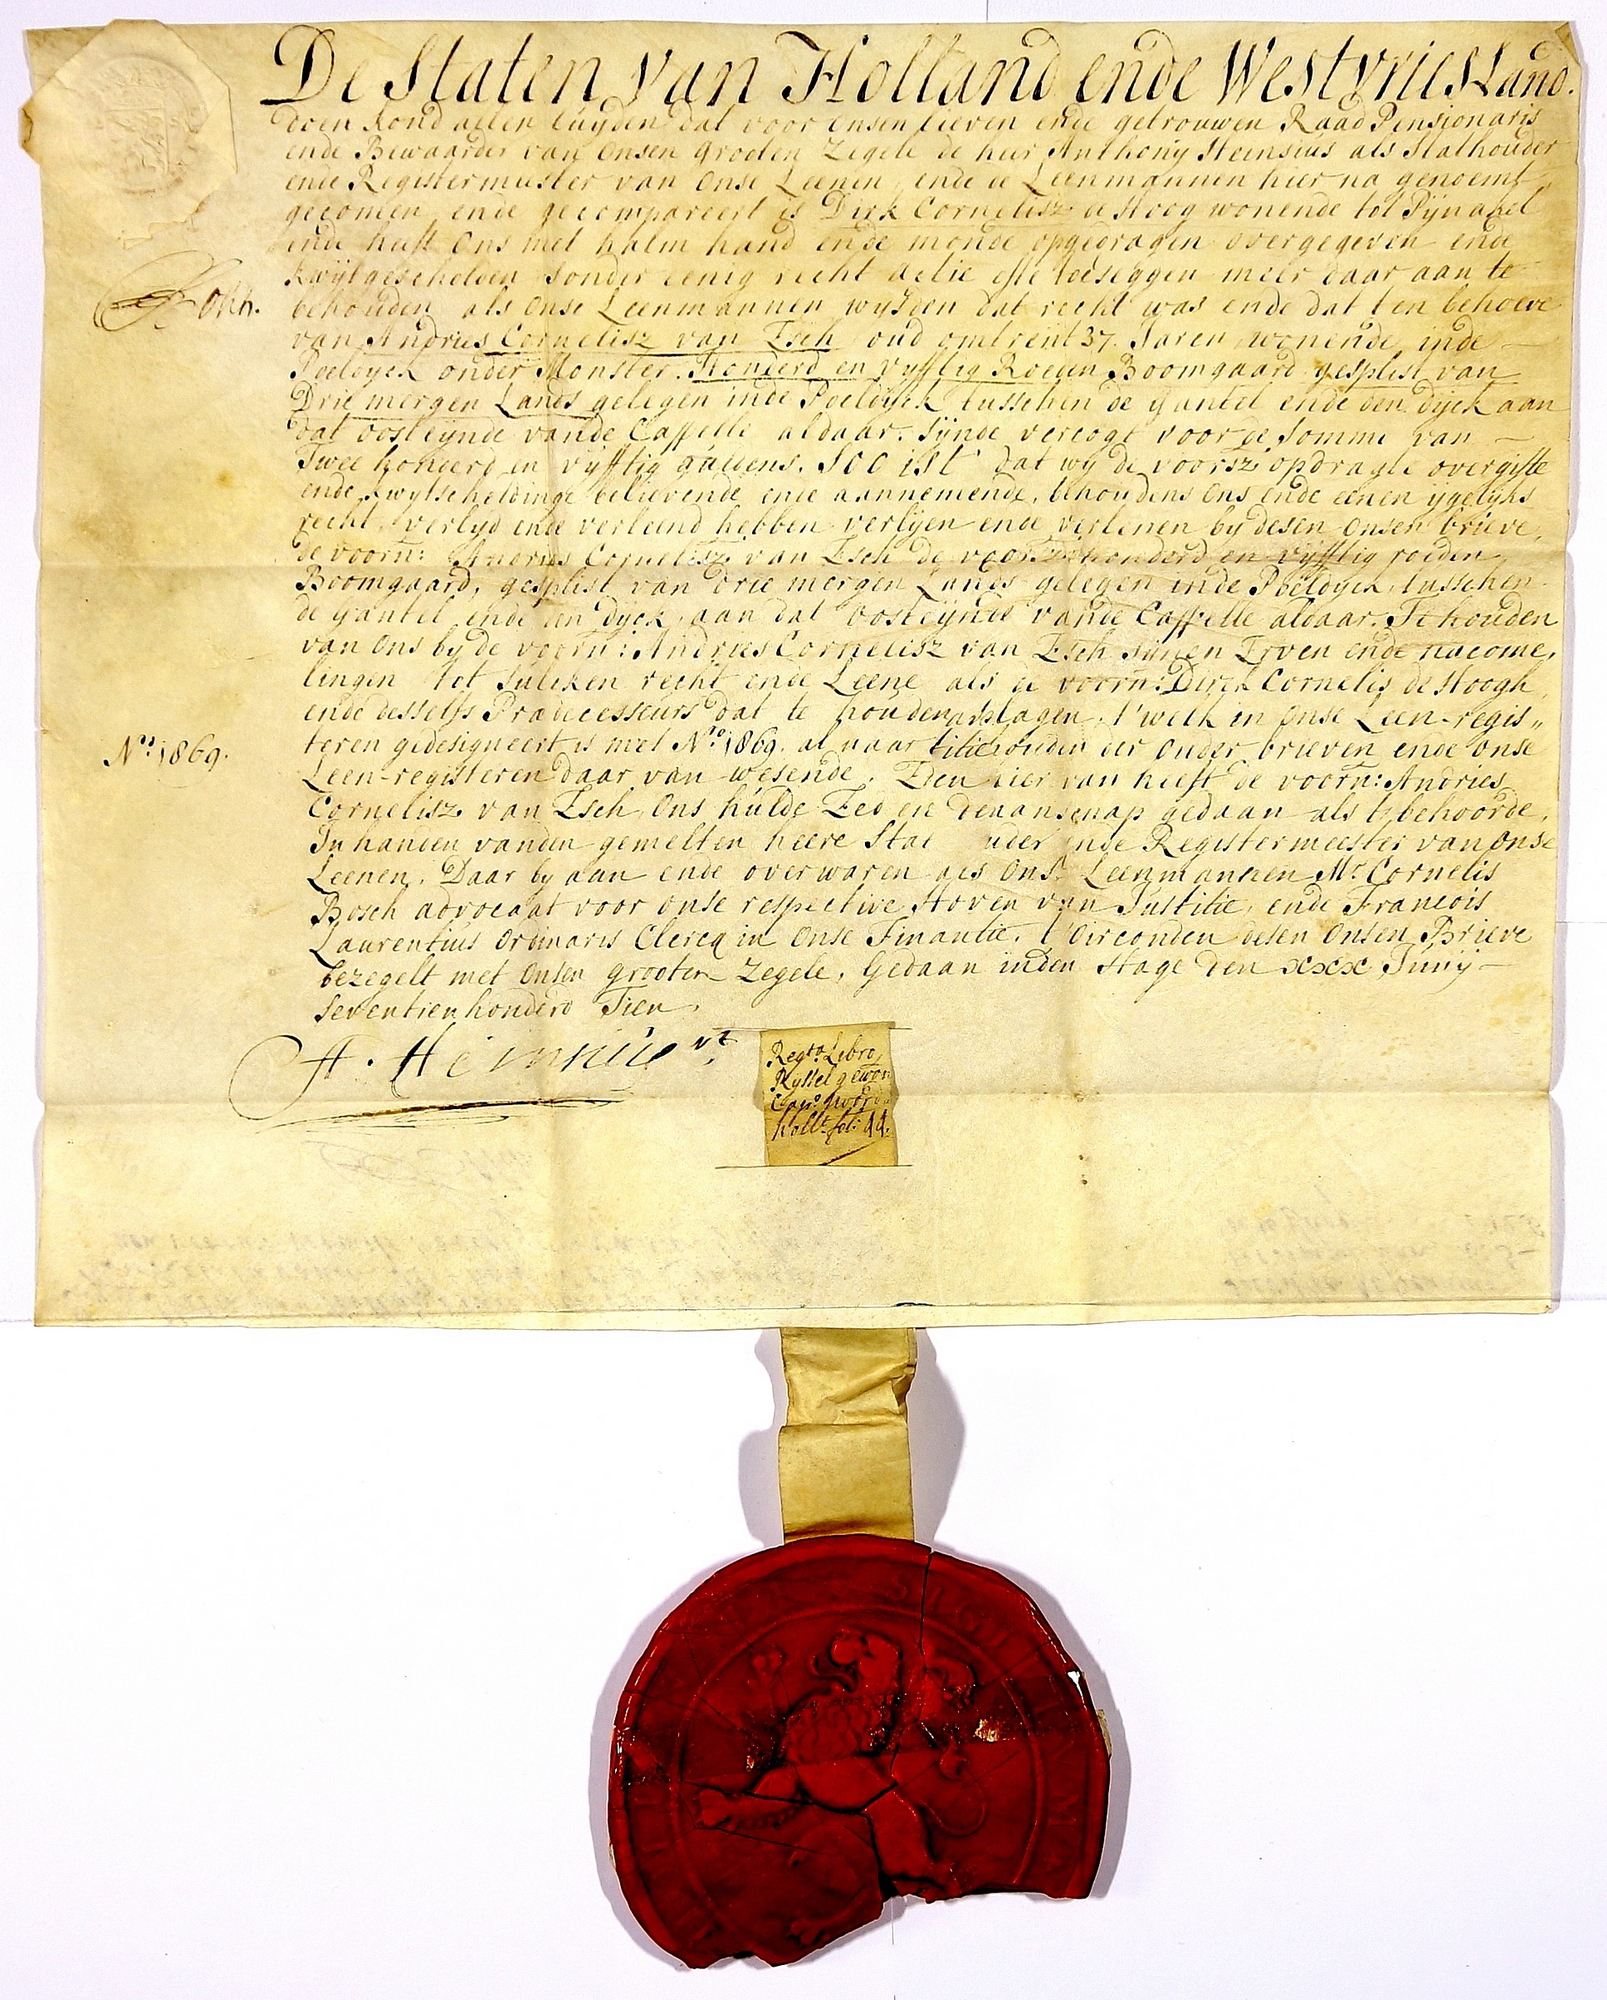 De Staten van Holland ende Westvriesland.
doen kond allen luyden dat voor onsen lieven ende getrouwen Raad Pensionaris
ende Bewaarder van onsen grooten Zegele de heer Anthony Heinsius als Stathouder
ende Registermeester van onse Leenen, ende de Leenmannen hier na genoemt,
gecomen ende gecompareert is Dirk Cornelisz de Hoog wonende tot Pijnakel
ende heeft ons met halm hand ende monde opgedragen overgegeven ende
kwijtgescholden sonder eenig recht actie ofte toeseggen meer daar aan te
behouden als onse Leenmannen wysden dat recht was ende dat ten behoeve
van Andries Cornelisz van Esch oud omtrent 37. Jaren wonende inde
Poeldyck onder Monster. Honderd en vyfftig Roeden Boomgaard gesplist van
Drie mergen Lands gelegen inde Poeldyck tusschen de Gantel ende den dijck aan
dat oosteijnde vande Cappelle aldaar. sijnde vercogt voor de somme van
Twee honderd en vyfftig guldens. Soo ist dat wy de voorsz: opdragte overgifte
ende kwytscheldinge believende ende aannemende, behoudens ons ende eenen ygelyks
recht, verlyd ende verleend hebben verlijen ende verleenen by desen onsen brieve,
de voorn: Andries Cornelisz van Esch de voorsz: honderd en vyfftig roeden
Boomgaard, gesplist van drie mergen Lands gelegen inde Poeldyck, tusschen
de Gantel ende den dyck, aan dat oosteynde vande Cappelle aldaar. Te houden
van ons by de voorn: Andries Cornelisz van Esch sijnen Erven ende nacome,
lingen tot sulcken recht ende Leene als de voorn: Dirck Cornelis de Hoogh
ende desselfs Pradecesseurs dat te houden plagen, t'welk in onse Leen-regis„
teren gedesigneert is met No. 1869. al naar uitichouden der ouder brieven ende onse
Leen-registeren daar van wesende. Ende hier van heeft de voorn: Andries
Cornelisz van Esch, ons hulde Eed en Manschap gedaan als t behoorde,
In handen vanden gemelten heere Stat uder ende Registermeester van onse
Leenen. Daar by aan ende over waren als onse Leenmannen Mr. Cornelis
Bosch advocaat voor onse respective Hoven van Justitie, ende Francois
Laurentius Ordinaris Clercq in onse Finantie. t'Oirconden desen onsen Brieve
bezegelt met onsen grooten Zegele. Gedaan inden Hage den xxx Junij
Seventien honderd Tien.
No. 1869.
A. Heinsius vt.
Regta. Libro
Ryssel gewon
Capo.
Hollt. fol: 44.